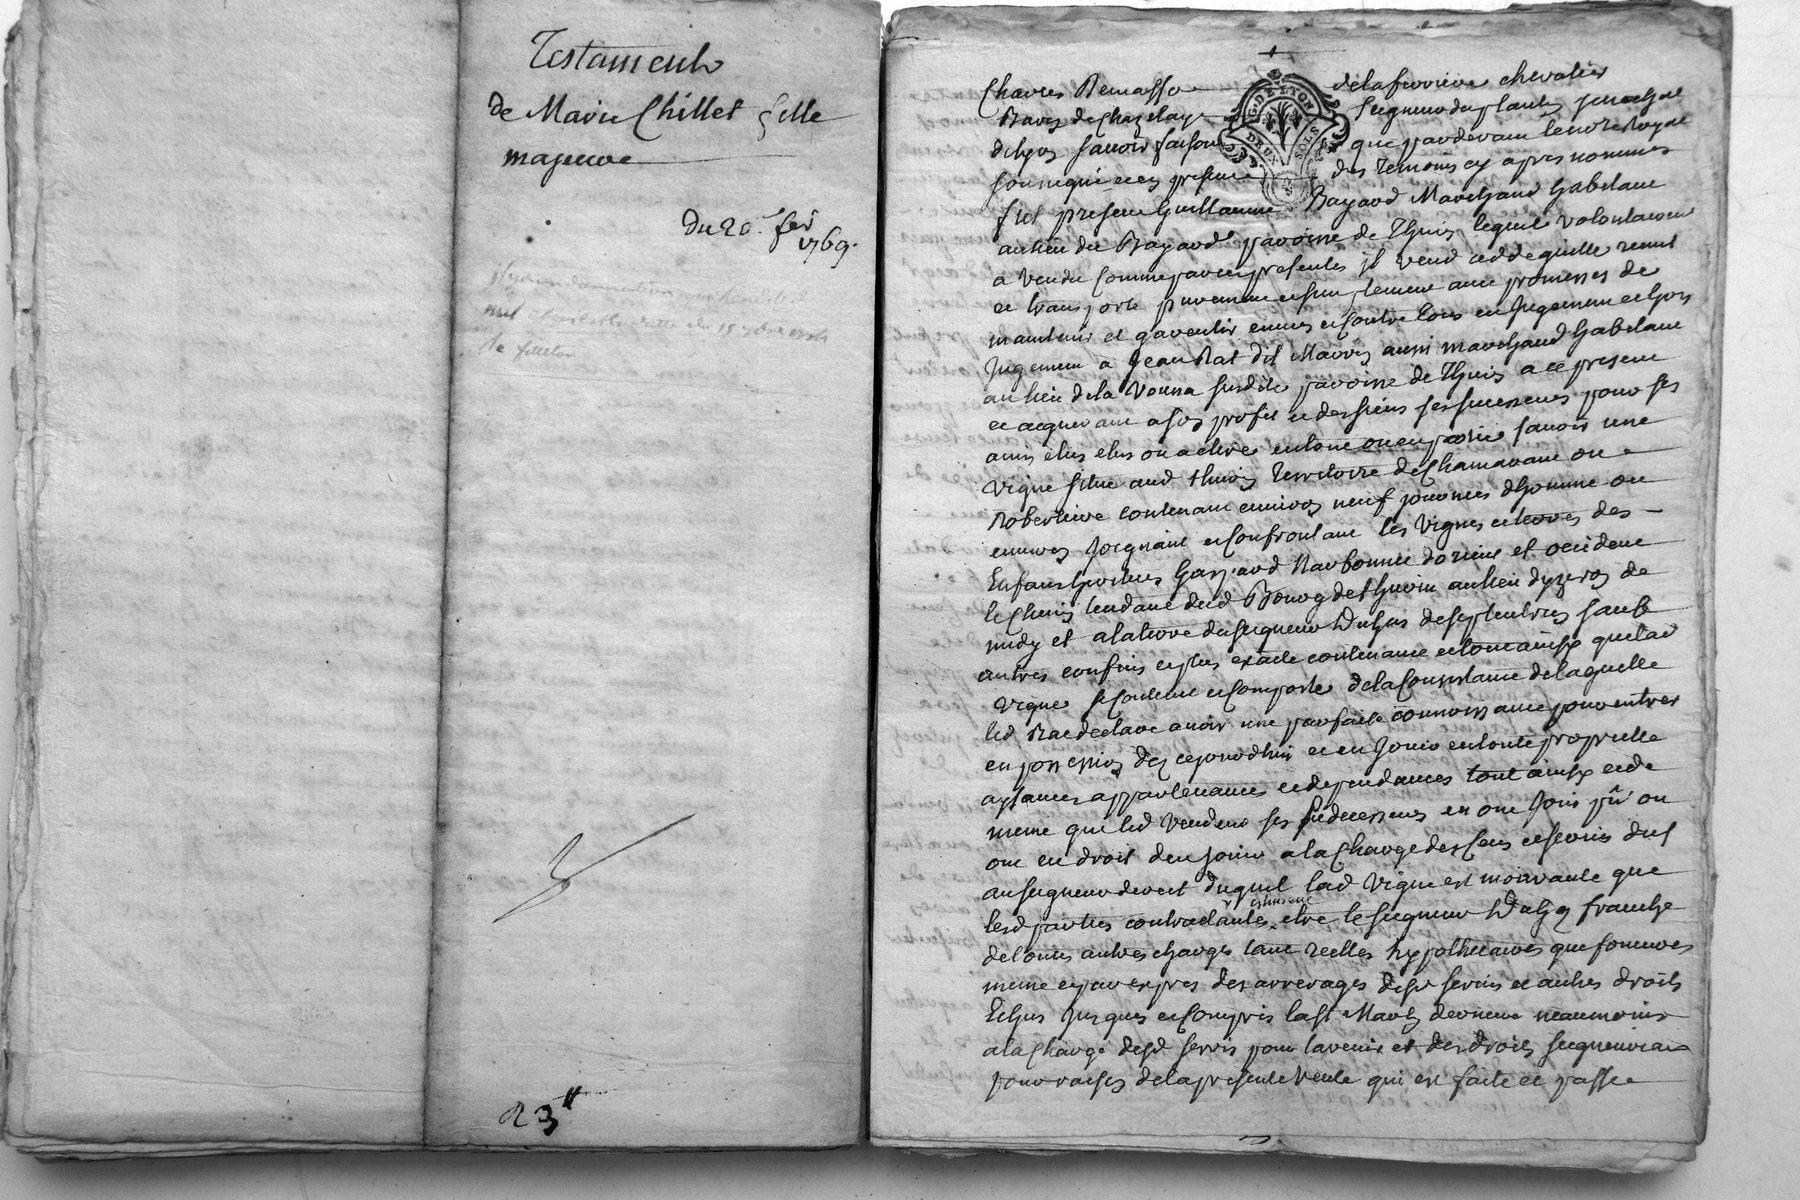 Testament
de Marie Chillet fille
majeure
Du 20 fer
1769.
23
G. DE LYON
DEUX SOLS
Charles Remasse de la ferriere chevalier
Baron de Chazelay Seigneur du plantin senechal
de lyon savoir faisons que pardevant le notre Royal
soussigné et en presence des temoins cy apres nommes
fut present Guillaume Bayard Marchand habitant
au lieu du Bayard paroisse de Thuis lequel volontairement
a vendu comme par ces presentes il vend cedde quitte remet
et transporte purement et simplement avec promesses de
maintenir et garentir envers et contre tous en Jugement et hors
Jugement a Jean Rat dit Marvis aussi marchand habitant
au lieu de la Vouna susdite paroisse de Thuis a ce present
et acquerant a son profit et des siens ses successeurs pour ses
amis elus elus ou a elire en tout ou en partie savoir une
vigne situé aud thuis Territoire de Chamarane ou
Robertiere contenant environ neuf journées dhomme ou
environ Joignant et Confrontant les Vignes et terres des
Enfans heritiers Gaspard Narbonnet dorient et occident
le Chemin tendant dud Bourg de thuis au lieu dyzeron de
midy et a la terre du seigneur Duhis de septentrion sauf
autres confins et plus exacte contenance et tout ainsy que lad
vigne se Contient et Comporte de la Consistance de laquelle
led Rat declare avoir une parfaite connoissance pour entrer
en possession dez ce jourdhui et en Jouir en toute proprieté
aysances appartenances et dependances tout ainsy et de
meme que led Vendeur ses predecesseurs en ont Joui pû ou
ont eu droit den Jouir a la Charge des Cens et servis dus
au seigneur direct duquel lad Vigne est mouvante que
lesd parties contractantes estiment etre le seigneur Duhy franche
de toutes autres charges tant reelles hypothecaires que foncieres
meme et par expres des arrerages desd servis et autres droits
Echus Jusques et Compris la St Martin derniere neanmoins
a la Charge desd servis pour lavenir et des droits seigneuriaux
pour raison de la presente Vente qui est faite et passée